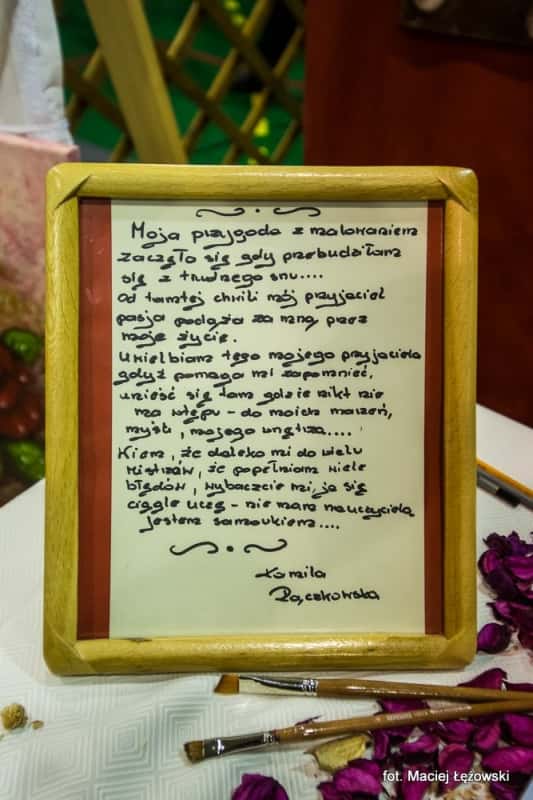 Moja przygoda z malowaniem
zaczęło się gdy przebudziłam
się z trudnego snu....
od tamtej chwili mój przyjaciel
pasja podąża za mną przez
moje życie.
Uwielbiam tego mojego przyjaciela
gdyż pomaga mi zapomnieć,
unieść się tam gdzie nikt nie
ma wstępu - do moich marzeń,
myśli, mojego wnętrza....
Wiem, że daleko mi do wielu
mistrzów, że popełniam wiele
błędów, wybaczcie mi, ja się
ciągle uczę - nie mam nauczyciela
jestem samoukiem....
Kamila
Rączkowska
fot. Maciej Łężowski